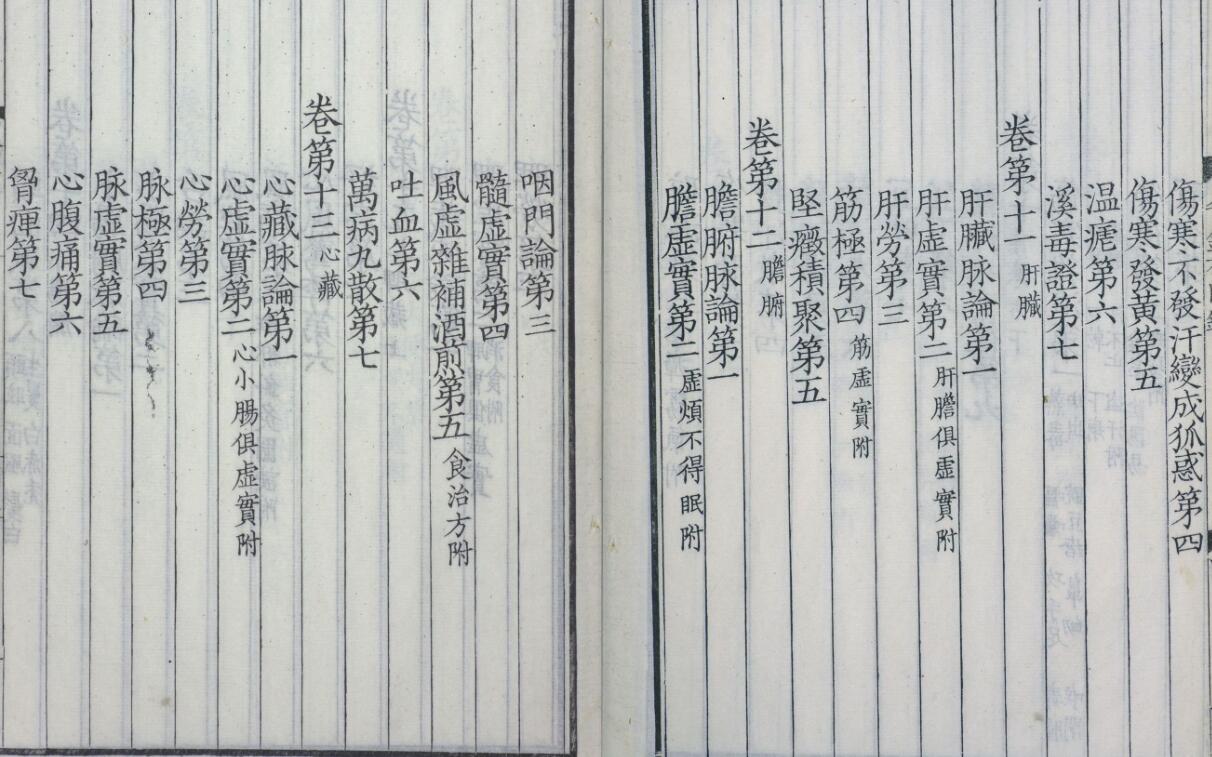 傷寒不發汗變成狐惑第四
傷寒發黄第五
温瘧第六
溪毒證第七
卷第十一 肝臟
肝臟脉論第一
肝虚實第二 肝膽俱虚實附
肝勞第三
筋極第四 筋虚實附
堅癥積聚第五
卷第十二 膽腑
膽腑脉論第一
膽虚實第二 虚煩不得眠附
咽門論第三
髓虚實第四
風虚雜補酒煎第五 食治方附
吐血第六
萬病丸散第七
卷第十三 心藏
心藏脉論第一
心虚實第二 心小腸俱虚實附
心勞第三
脉極第四
脉虚實第五
心腹痛第六
胷痺第七